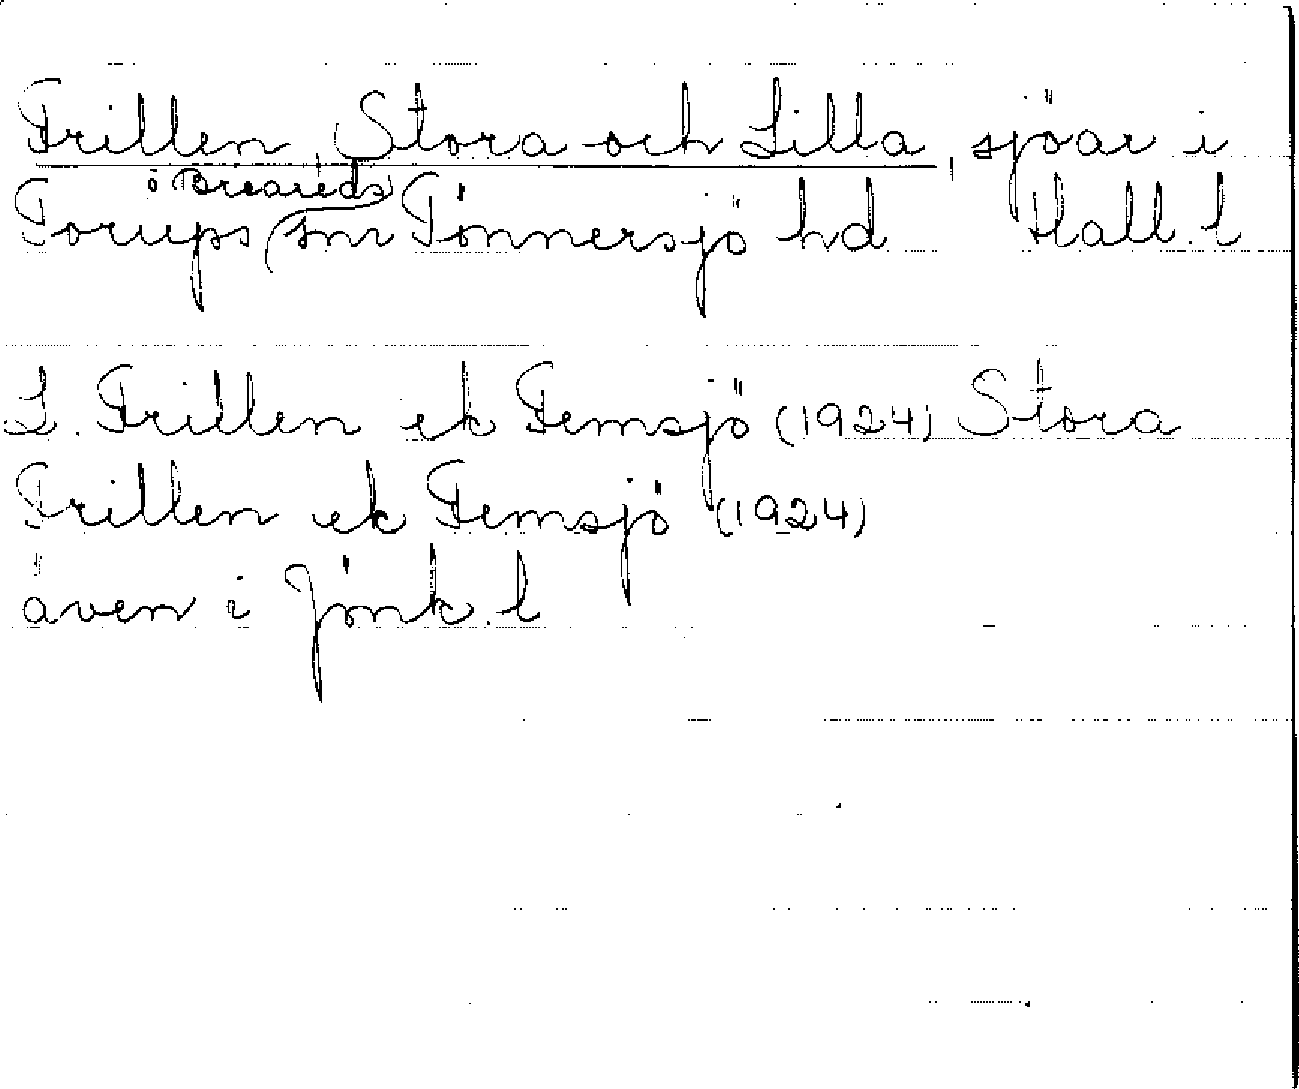 Frillen, Stora och Lilla, sjöar i
Torups o Breareds snr Tönnersjö hd Hall. l
L. Frillen ek Femsjö (1924) Stora
Frillen ek Femsjö (1924)
även i Jönk. l